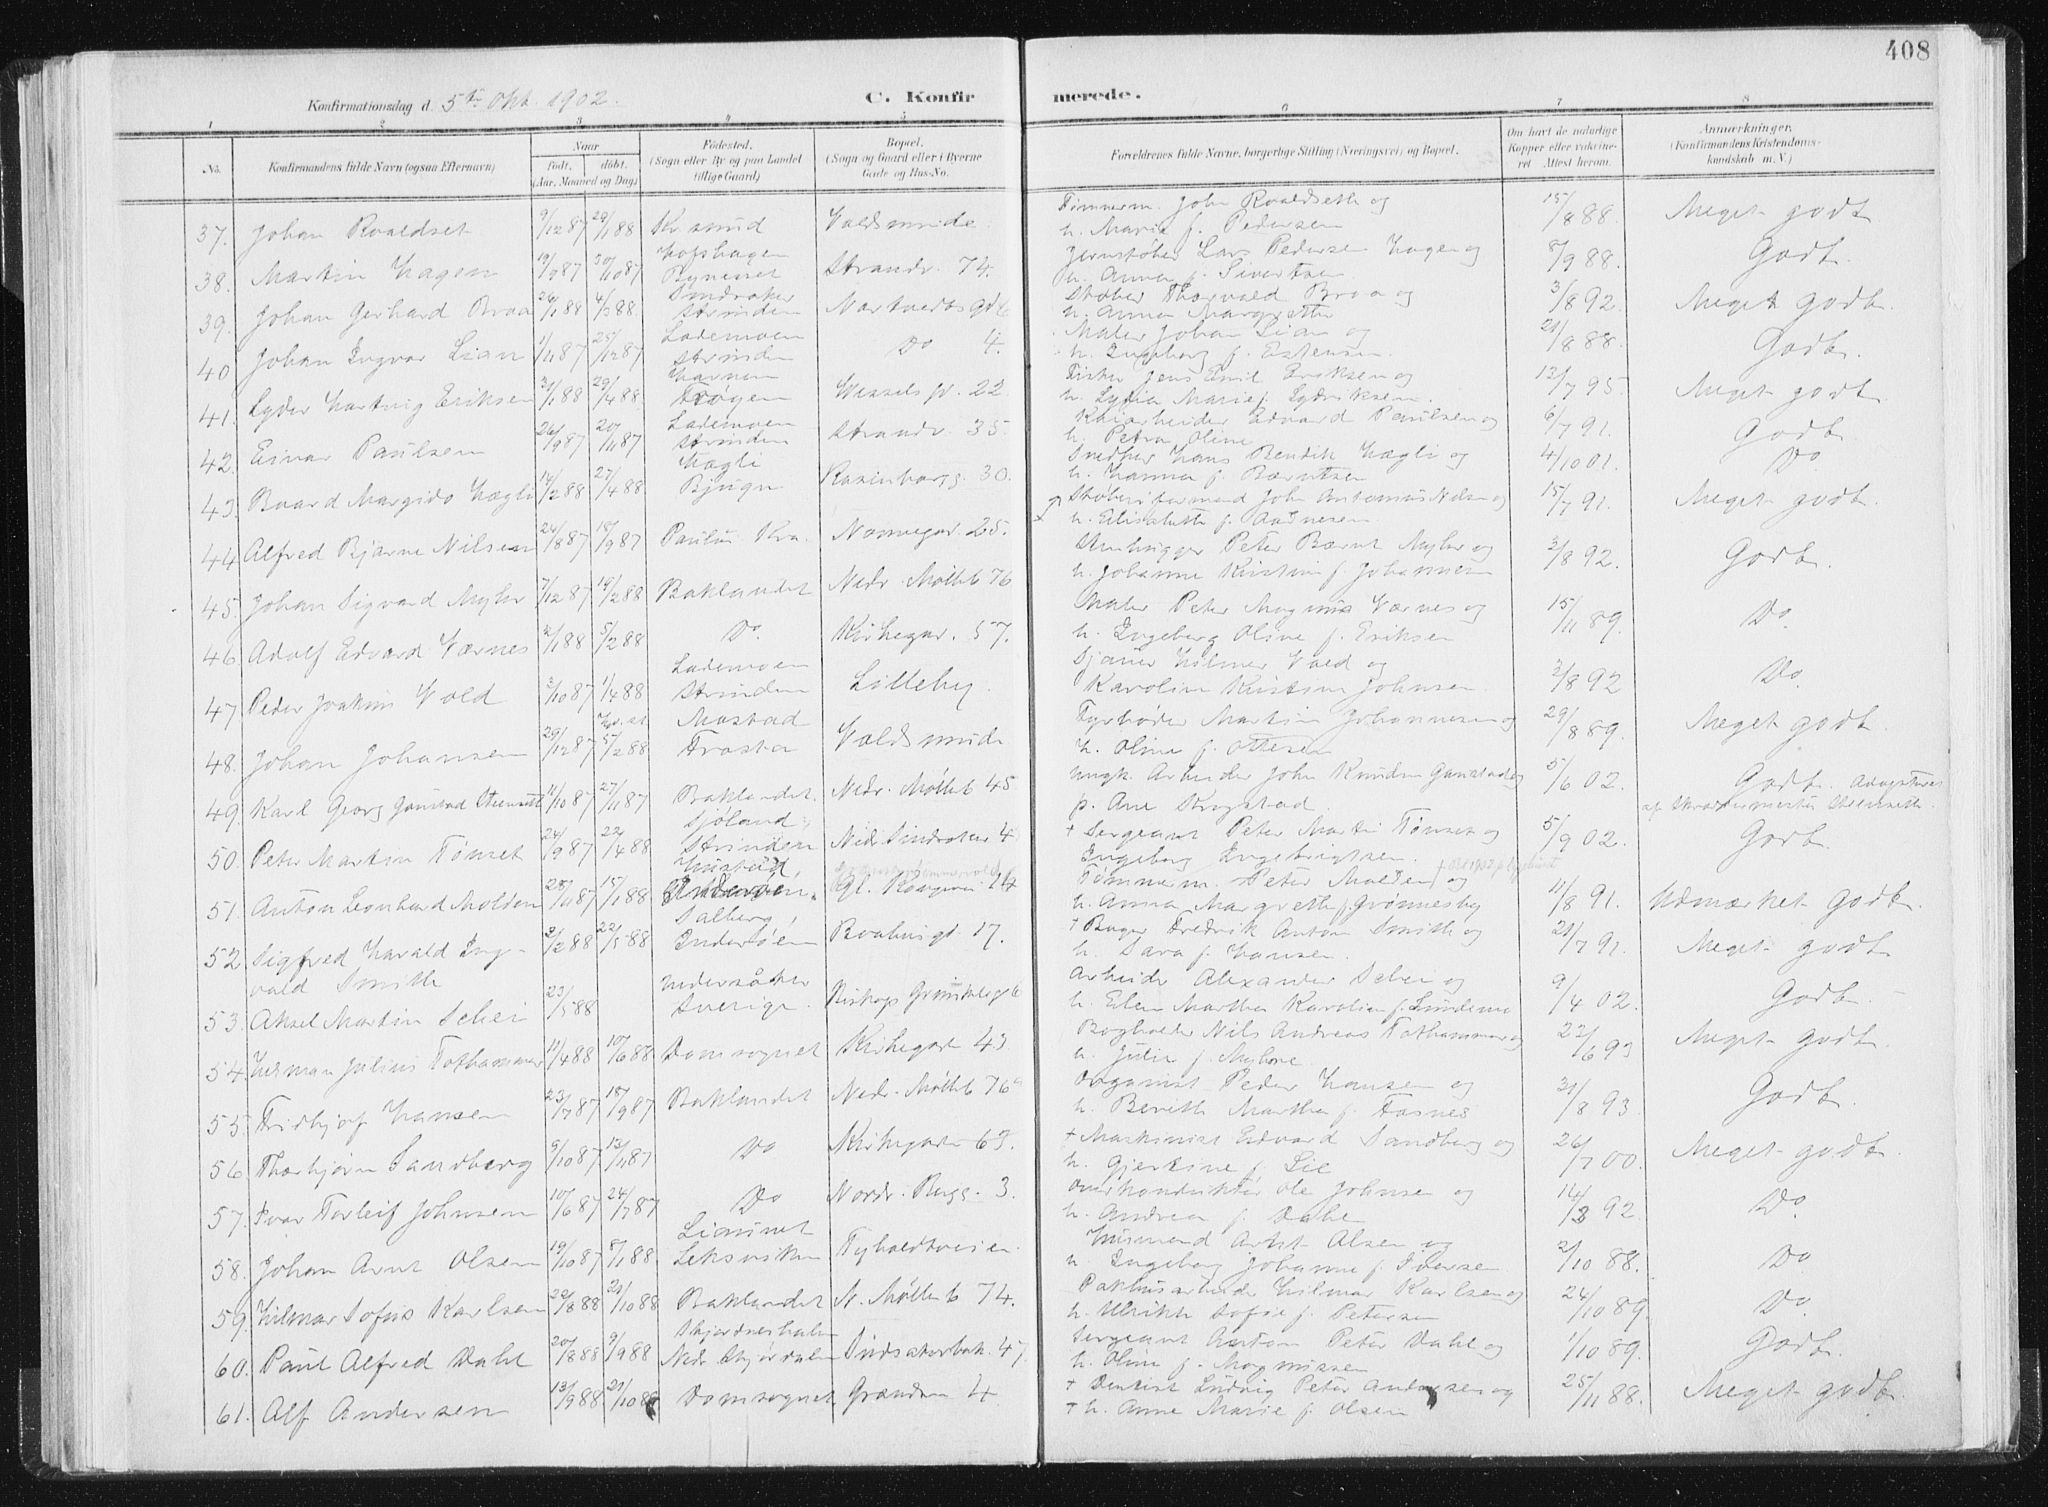 408
Konfirmationsdag d. 5te Okt. 1902.
C. Konfirmerede.
1 2 3 4 5 6 7 8
No.
Konfirmandens fulde Navn (ogsaa Efternavn)
Naar
født, døbt.
(Aar, Maaned og Dag.)
Fødested.
(Sogn eller By og paa Landet
tillige Gaard)
Bopæl.
(Sogn og Gaard eller i Byerne
Gade og Hus-No.
Forældrenes fulde Navne, borgerlige Stilling (Næringsvei) og Bopæl.
Om havt de naturlige
Kopper eller vaccine-
ret Attest herom.
Anmærkninger.
(Konfirmandens Kristendoms-
kundskab m. V.)
Tømmerm. John Roaldseth og
37. Johan Roaldset 9/12 87 29/1 88 Kr.sund Voldsminde h. Marie f. Pedersen 15/8 88 Meget godt
Hofshagen Jernstøber Lars Pedersen Hagen og
38. Martin Hagen 19/9 87 30/10 87 Bynesset Strandv. 74. h. Anna f. Sivertsen 8/9 88. Godt.
Sindsaker Støber Thorvald Braa og
39. Johan Gerhard Braa 26/1 88 4/3 88 Strinden h. Anna Margrethe 3/8 92. Meget godt.
Lademoen Maler Johan Lian og
40 Johan Ingvar Lian 1/11 87 25/12 87 Strinden Do 4. h. Ingeborg f. Estensen. 21/8 88. Godt.
Havnen Fisker Jens Emil Eriksen og
41. Lyder Hartvig Eriksen 31/1 88 29/4 88 Wessels gt. 22. h. Lydia Marie f. 12/7 95. Meget godt.
Lademoen Kaiarbeider Edvard Paulsen og
42. Einar Paulsen 26/9 87 20/11 87 Strinden Strandv. 35. h. Petra Oline 6/7 91. Godt.
Hægli Snedker Hans Bendik Hægli og
43. Baard Margido Hægli 14/2 88 27/4 88 Bjugn Rosenborgg. 30. h. Hanna f. Berntsen 4/10 01. Do
John Antonius Nilsen og
44. Alfred Bjarne Nilsen 24/8 87 18/9 87 Paulus Kra. Nonnegad. 25. h. Elisabeth f. Aadnesen 15/7 91. Meget godt
Stenhugger Peter Bernt Myhr og
45. Johan Sigvard Myhr 7/12 87 19/2 88 Baklandet Nedr. Møllebk 76 h. Johanne Kristine f. Johannesen 3/8 92. Godt.
Maler Peter Magnus Værnes og
46. Adolf Edvard Værnes 2/1 88 5/2 88 Do. Kirkegad. 57. h. Ingeborg Oline f. Eriksen 15/11 89. Do
Lademoen Sjauer Hilmer Vold og
47. Peder Joakim Vold 3/10 87 1/4 88 Strinden Lilleby. Karoline Kristine Johnsen. 3/8 92 Do
Mostad Fyrbøder Martin Johannesen og
48. Johan Johansen 29/12 87 5/2 88 Frosta Voldsminde h. Oline f. Ottesen 29/8 89. Meget godt.
ungk. Arbeider John Knudsen Ganstad og
49. Karl Georg Ganstad Steenseth 11/10 87 27/11 87 Baklandet Nedr. Møllebk 45 p. Ane Krogstad. 5/6 02. Godt. Adopteret
af Skræddermester Steenseth.
Sjøland, + Sergeant Peter Martin Tønset og
50. Peter Martin Tønset 24/9 87 22/4 88 Strinden Nedr. Sindsaker 4 Ingeborg Ingebrigtsen. 5/9 02. Godt.
Hustad, Tømmerm. Peter Molden og
51. Anton Leonhard Molden 28/11 87 15/1 88 Inderøen. Gl. Kongevei h. Anna Margrethe f. Grønnesby 11/8 91. Udmærket Godt.
Salberg, + Bager Fredrik Anton Smith og
52. Sigfred Harald Ing- 2/2 88 22/5 88 Inderøen Baahusgt 17. h. Sara f. Hansen. 21/7 91. Meget godt
vald Smith Undersåker Arbeider Alexander Schei og
53. Aksel Martin Schei 23/5 88 Sverige. Bishops Grimkelsgt 6 h. Elen Martha Karoline f. Lundemo 9/4 02. Godt.
Bogholder Nils Andreas Tothammer og
54. Herman Julius Tothammer 11/4 88 10/6 88 Domsognet Kirkegaden 43 h. Julie f. Myhre 22/6 93 Meget godt
Organist Peder Hansen og
55. Fridtjof Hansen 23/7 87 18/9 87 Baklandet Nedr. Møllebk 76a h. Bereth Martha f. Fosnes 31/8 93. Godt.
+ Maskinist Edvard Sandberg og
56. Thorbjørn Sandberg 9/10 87 13/11 87 Do Kirkegaden 63. h. Gjertine f. Lie 26/7 00. Meget godt.
Overkonduktør Ole Johnsen og
57. Ivar Torleif Johnsen 10/6 87 24/7 87 Do Nordr. Bugg. 3. h. Andrea f. Dahl 14/8 92. Do
Liaunet Husmand Arnt Olsen og
58. Johan Arnt Olsen 19/10 87 8/1 88 Leksviken Tyholdtveien. h. Ingeborg Johanne f. Iversen 2/10 88. Do
Pakhusarbeider Hilmar Karlsen og
59. Hilmar Sofus Karlsen 22/8 88 21/10 88 Baklandet N. Møllebk 74. h. Ulrikke Sofie f. Petersen 24/10 89. Do
Skjerdneshalen Sergeant Anton Peter Dahl og
60. Paul Alfred Dahl 20/8 88 9/9 88 Nedr. Stjørdalen Sindsakerbak. 47. h. Oline f. Magnussen 1/10 89. Godt.
+ Dentist Ludvig Peter Andersen og
61. Alf Andersen 13/9 88 21/10 88 Domsognet Grændsen 4 + h. Anne Marie f. Olsen 25/11 88. Meget godt.